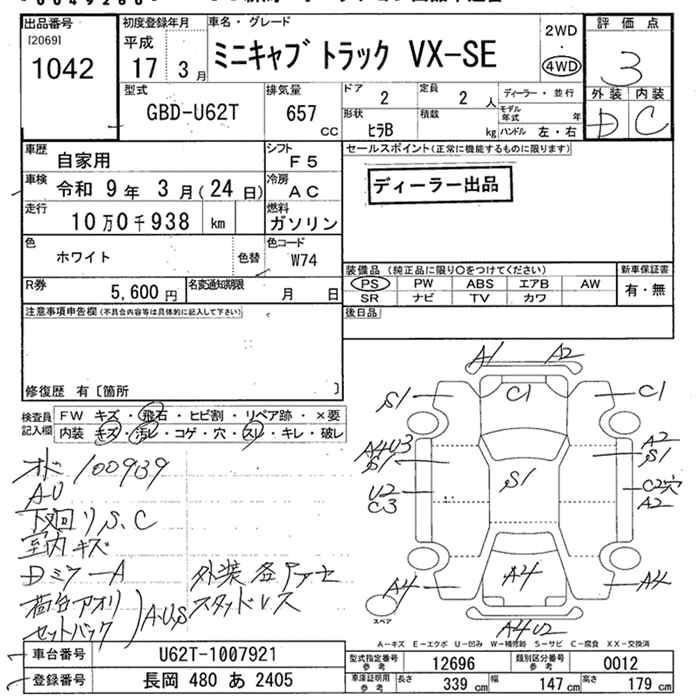 出品番号
[2069]
1042
初度登録年月
平成
17 3月
車名・グレード
ミニキャブ トラック VX-SE
2WD
・
4WD
評価点
3
外装 内装
D C
型式
GBD-U62T
排気量
657 cc
ドア
2
定員
2 人
ディーラー・並行
モデル年式 年
形状
ヒラB
積載
kg
ハンドル 左・右
車歴
自家用
シフト
F5
セールスポイント(正常に機能するものに限ります)
ディーラー出品
車検
令和 9年 3月(24日)
冷房
AC
走行
10万0千938 km
燃料
ガソリン
色
ホワイト
色替
色コード
W74
R券
5,600円
名変通知期限
月 日
装備品(純正品に限り○をつけてください)
PS PW ABS エアB AW
SR ナビ TV カワ
新車保証書
有・無
後日品
注意事項申告欄(不具合内容等は具体的に記入して下さい)
修復歴 有〔箇所 〕
検査員
記入欄
FW キズ・飛石・ヒビ割・リペア跡・×要
内装 キズ・汚レ・コゲ・穴・スレ・キレ・破レ
100939
AU
下回りS,C
室内キズ
荷台アオリ
セットバック
AUS
スタッドレス
A1 A2
S1 C1 C1
A4U3
S1
A2
S1
S1
U2
C3
C2穴
A2
A4 A4 A4
A4U2
スペア
A-キズ E-エクボ U-凹み W-補修跡 S-サビ C-腐食 XX-交換済
車台番号
U62T-1007921
型式指定番号
参考
12696
類別区分番号
参考
0012
登録番号
長岡 480 あ 2405
車庫証明用
参考
長さ 339 cm
幅 147 cm
高さ 179 cm